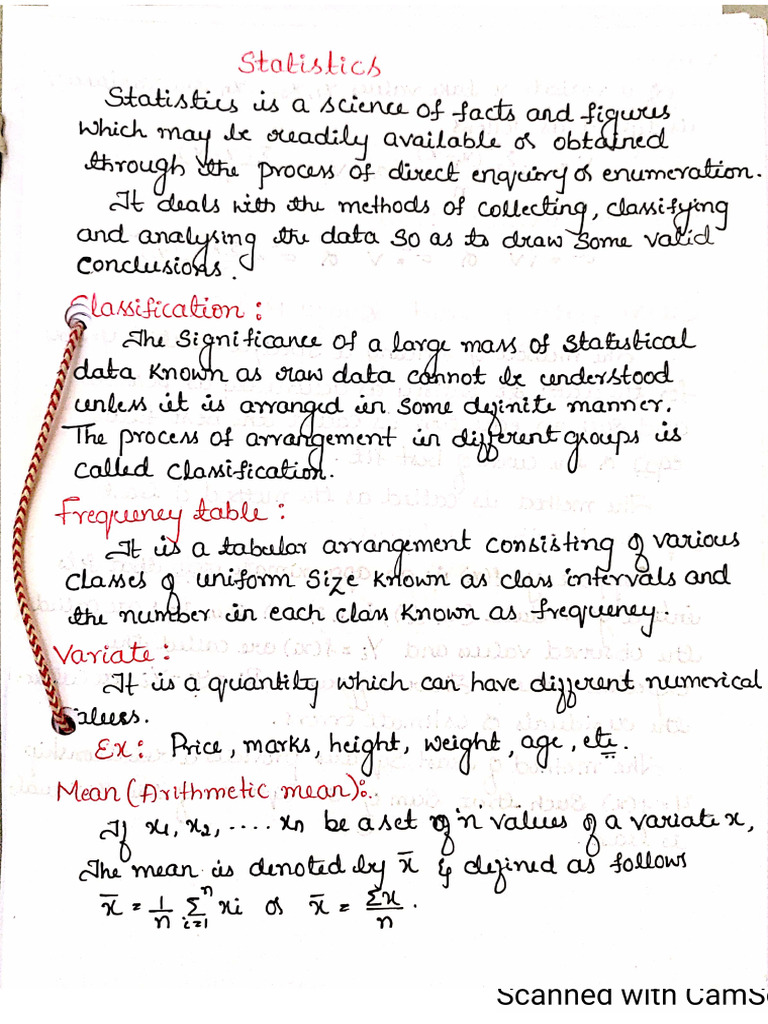 Statistics
Statistics is a science of facts and figures
which may be readily available or obtained
through the process of direct enquiry or enumeration.
It deals with the methods of collecting, classifying
and analysing the data so as to draw some valid
conclusions.
Classification :
The significance of a large mass of statistical
data known as raw data cannot be understood
unless it is arranged in some definite manner.
The process of arrangement in different groups is
called classification.
Frequency table :
It is a tabular arrangement consisting of various
classes of uniform size known as class intervals and
the number in each class known as frequency.
Variate :
It is a quantity which can have different numerical
values.
Ex: Price, marks, height, weight, age, etc.
Mean (Arithmetic mean):.
If x₁, x₂, .... xn be a set of 'n values of a variate x,
The mean is denoted by x̄ & defined as follows
x̄ = 1/n Σⁿᵢ₌₁ xi or x̄ = Σx/n .
Scanned with CamS